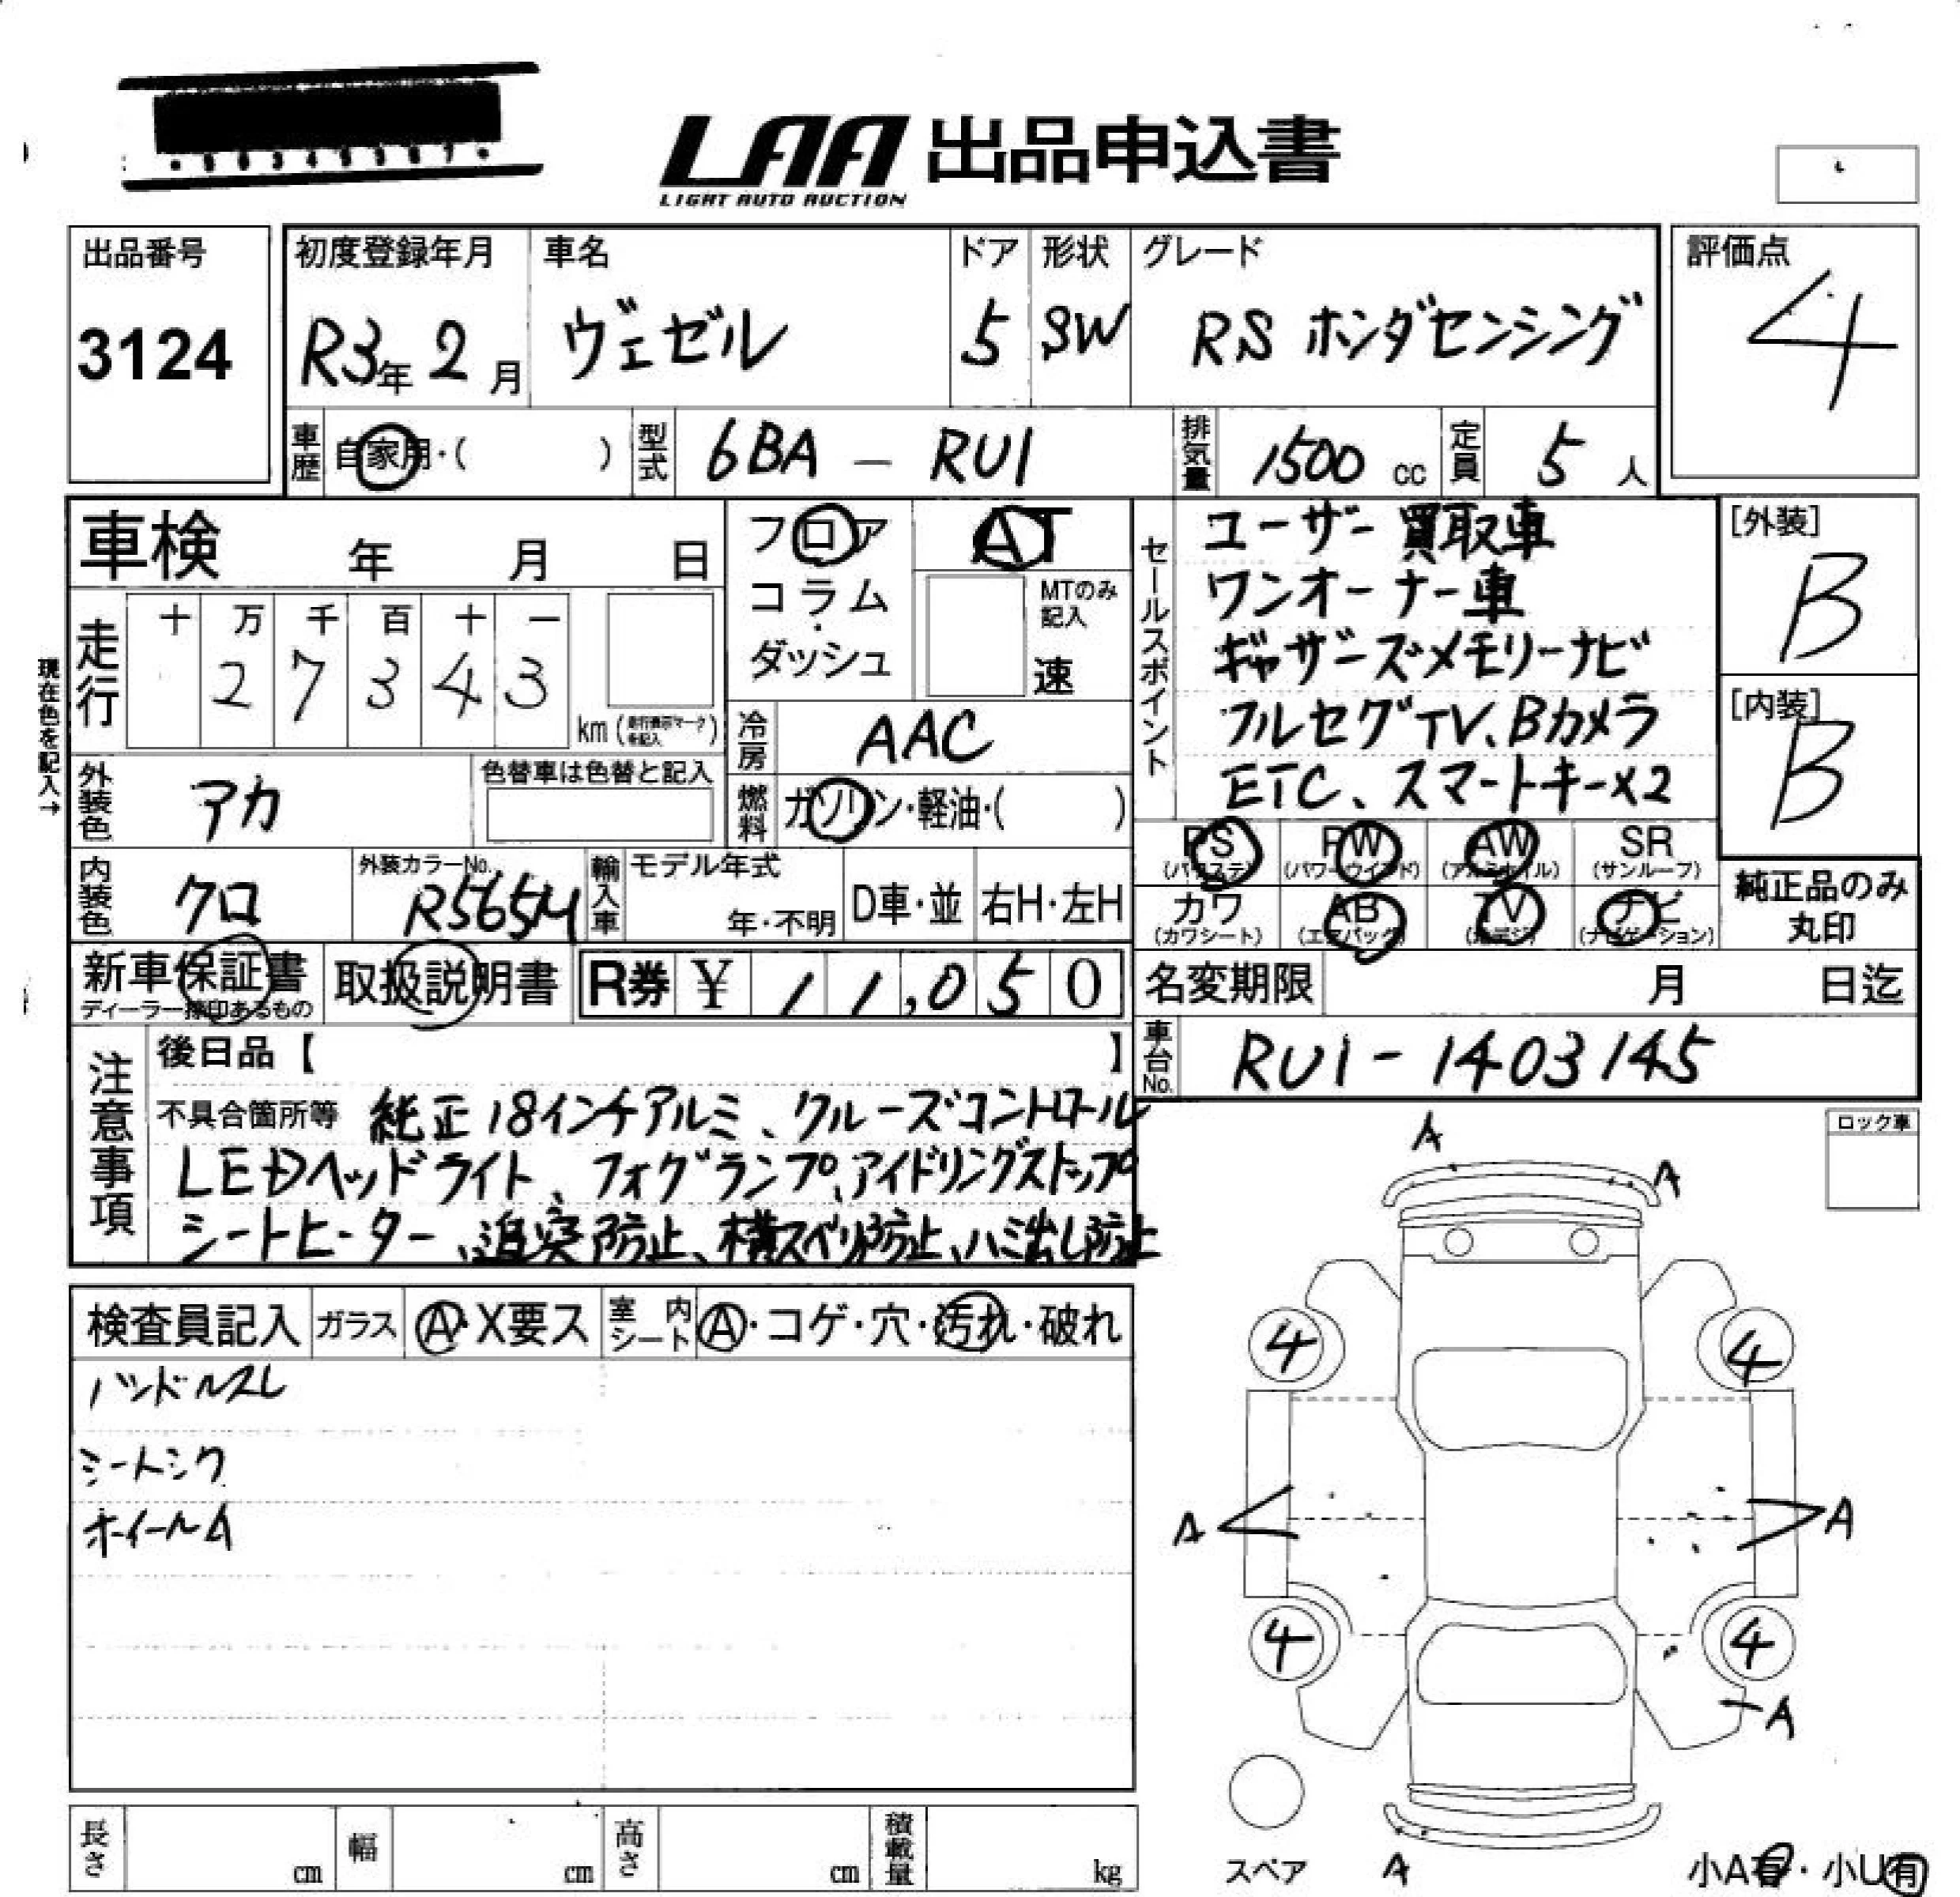 LAA 出品申込書
LIGHT AUTO AUCTION
出品番号
3124
初度登録年月
R3年 2月
車名
ヴェゼル
ドア
5
形状
SW
グレード
RS ホンダセンシング
評価点
4
車歴 自家用・( )
型式 6BA - RU1
排気量 1500 cc
定員 5 人
車検 年 月 日
フロア
コラム
・
ダッシュ
AT
MTのみ
記入
速
セールスポイント
ユーザー買取車
ワンオーナー車
ギャザーズメモリーナビ
フルセグTV、Bカメラ
ETC、スマートキー×2
[外装]
B
[内装]
B
現在色を記入→
走行
十 万 千 百 十 一
2 7 3 4 3
km (走行表示マークを記入)
冷房 AAC
外装色 アカ
色替車は色替と記入
燃料 ガソリン・軽油・( )
内装色 クロ
外装カラーNo.
R565M
輸入車
モデル年式
年・不明
D車・並
右H・左H
PS (パワステ)
PW (パワーウインド)
AW (アルミホイル)
SR (サンルーフ)
カワ (カワシート)
AB (エアバック)
TV (地デジ)
ナビ (ナビゲーション)
純正品のみ
丸印
新車保証書
ディーラー捺印あるもの
取扱説明書
R券 ¥ 11,050
名変期限 月 日迄
車台No. RU1-1403145
注意事項
後日品【 】
不具合箇所等 純正18インチアルミ、クルーズコントロール
LEDヘッドライト、フォグランプ、アイドリングストップ
シートヒーター、追突防止、横スベリ防止、ハミ出し防止
ロック車
検査員記入
ガラス A・X要ス
室内シート A・コゲ・穴・汚れ・破れ
ハンドルスレ
シートシワ
ホイールA
A
A
4
4
A
A
4
4
A
スペア
A
小A有・小U有
長さ cm
幅 cm
高さ cm
積載量 kg